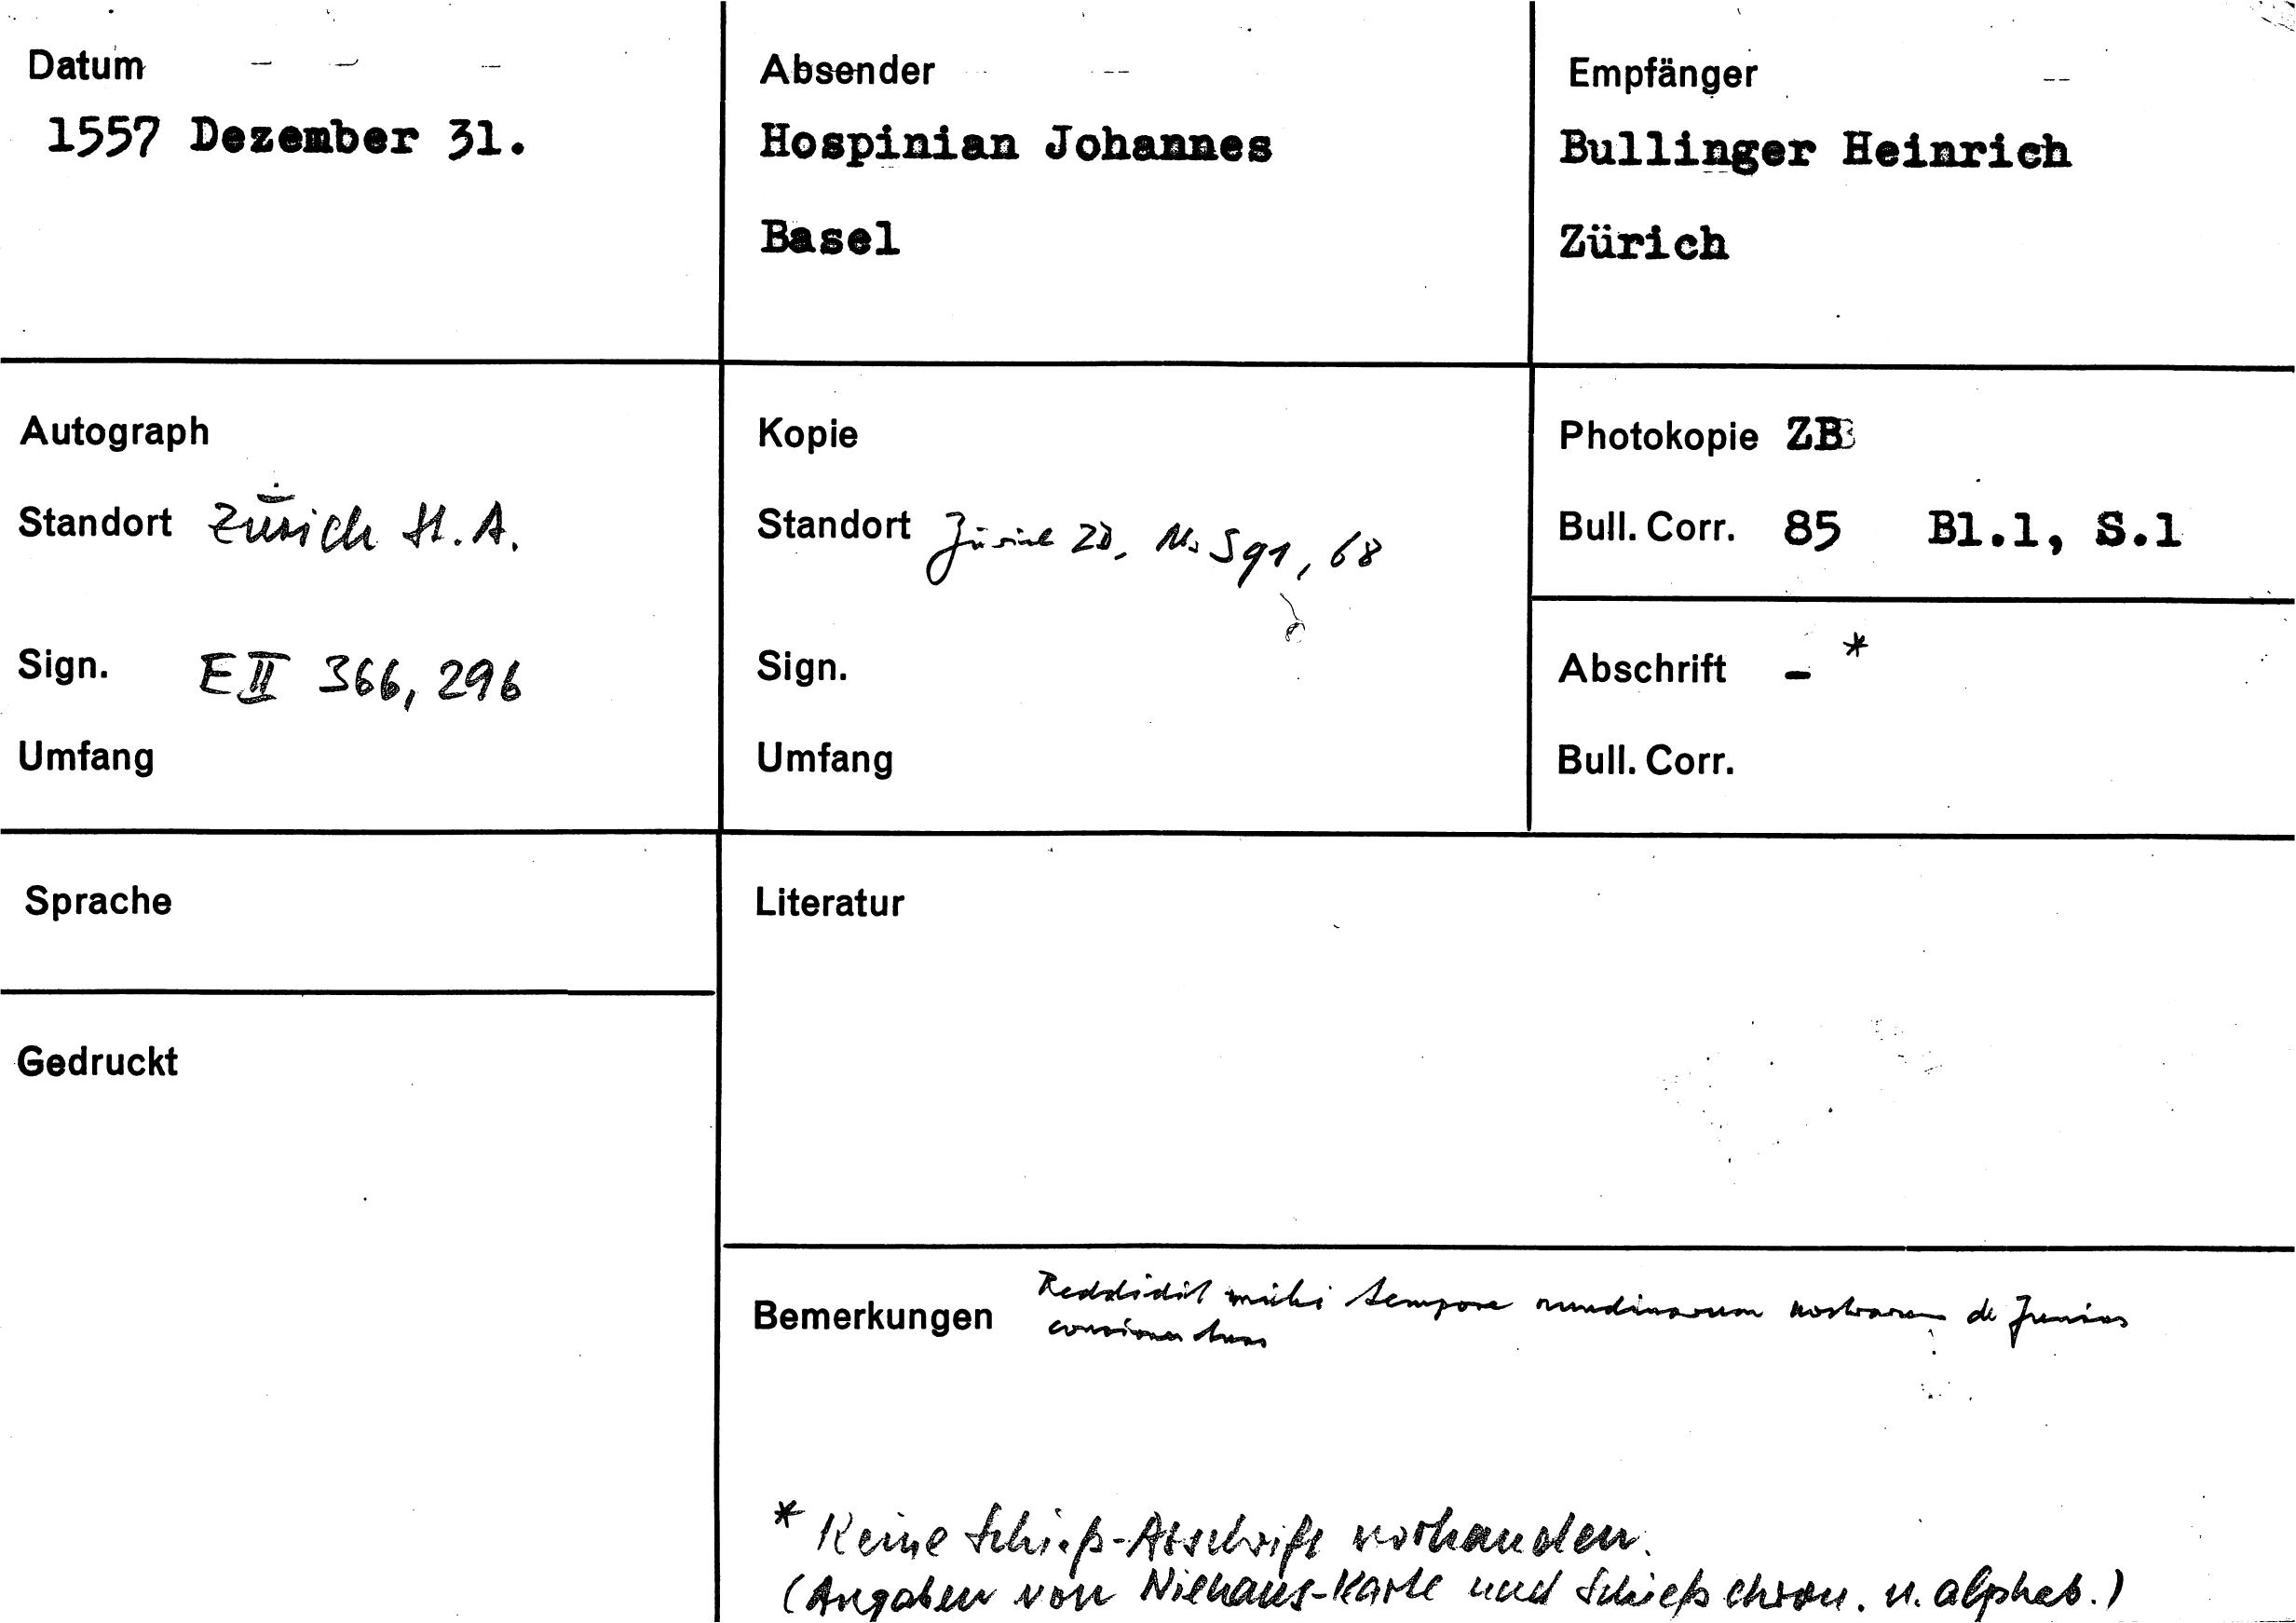 Datum
1557 Dezember 31.
Absender
Hospinian Johannes
Basel
Empfänger
Bullinger Heinrich
Zürich
Autograph
Standort Zürich St. A.
Sign. E II 366, 296
Umfang
Kopie
Standort Zürich ZB, Ms S 91, 68
Sign.
Umfang
Photokopie ZB
Bull. Corr. 85 Bl.1, S.1
Abschrift - *
Bull. Corr.
Sprache
Gedruckt
Literatur
Bemerkungen Reddidit mihi tempore nundinarum nostrarum de Junius
* Keine Schieß-Abschrift vorhanden.
(Angaben von Niehaus-Karte und Schieß chron. u. alphab.)